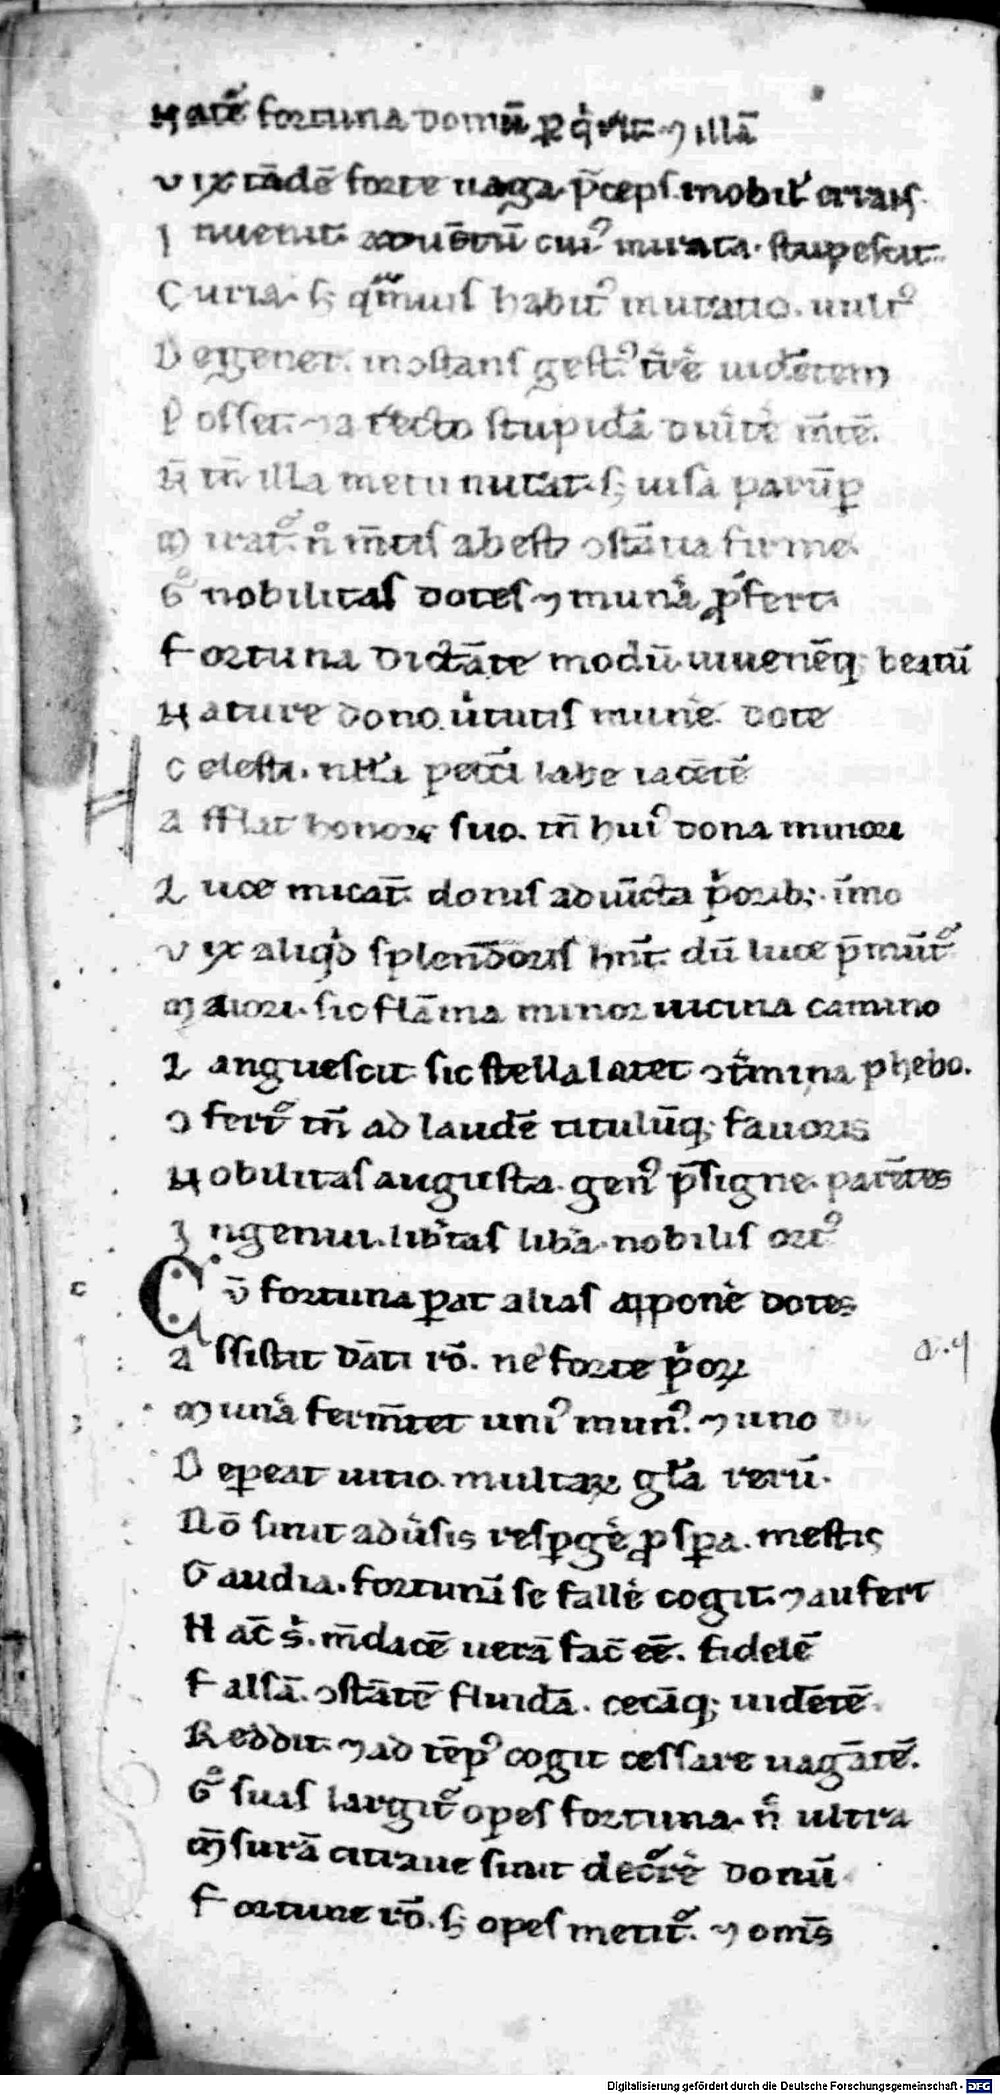 Natē fortuna domū ꝑ q̍ritᷓ ⁊ illā
vix tādē forte uaga p̄ceps mobil' errans.
Inuenit. aduētū cui᷒ mirata. stupescit.
Curia. sꝫ qᷓmuis habit᷒ mutatio. uult᷒
Degener. incōstans gest᷒. t̄rē' uidētem
Posset. ⁊ a recto stupidā diuīte' m̄tē.
N̄ tn̄ illa metu nutat. sꝫ uisa parūꝑ
Mirat᷑. nᷣ m̄tis abest ꝯstātia firme.
Gᵒ nobilitas dotes ⁊ munᷣa p̍fert.
Fortuna dictāte modū. iuuenēqꝫ beatū
Nature dono. ūtutis munᷣe. dote
Celesti. nllᷓa pecc̄i labe iacētē
Afflat honore suo. tn̄ hui᷒ dona minori
Luce micāt. donis aduīcta p̍oribꝫ. īmo
Vix aliqᷤd splendoris hn̄t. dū luce p̄mūt᷑
Maiori. sic flāma minor uicina camino
Languescit. sic stella latet ꝯt̄mina phebo.
Ↄfert᷑ tn̄ ad laudē titulūqꝫ fauoris
Nobilitas augusta. gen᷒ p̄signe. parētes
Ingenui. lib̄tas lib̍a. nobilis ort᷒
Cū fortuna ꝑat alias apponē' dotes
Assistit dāti rō. ne forte p̍oꝝ
Munᷣa ferm̄tet uni᷒ mun᷒. ⁊ uno
Deꝑeat uitio. multaꝝ gl̄a rerū.
Nō sinit adūsis resꝑgē' ꝓsꝑa. mestis
Gaudia. fortunā se fallē' cogit. ⁊ aufert
Hac̄ s̍. m̄dacē uerā fac̄ eē. fidelē
Falsā. ꝯstātē fluidā. cecāqꝫ uidētē.
Reddit. ⁊ ad tēp᷒ cogit cessare uagātē.
Gᵒ suas largit᷑ opes fortuna. nᷣ ultra
M̄surā citraue sinit dec̄rē' donū
Fortune rō. sꝫ opes metit᷑. ⁊ om̄s
c
Digitalisierung gefördert durch die Deutsche Forschungsgemeinschaft - DFG